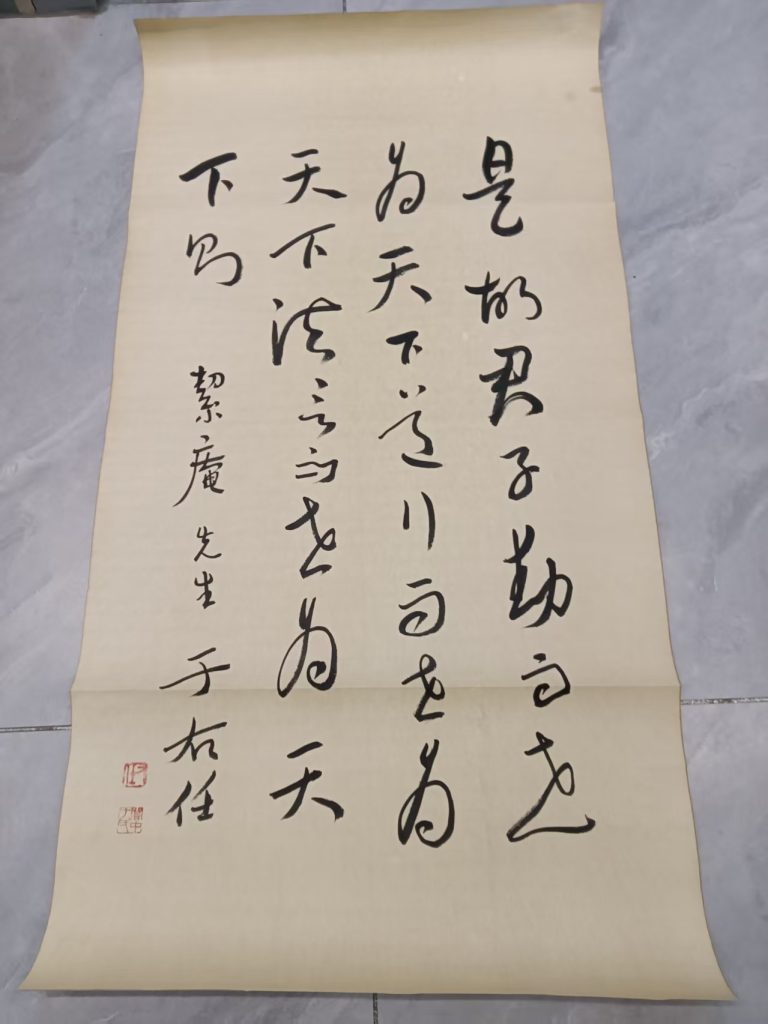 是故君子動而世
為天下道行而世為
天下法言而世為天
下則 絜庵先生 于右任
右任
關中于氏